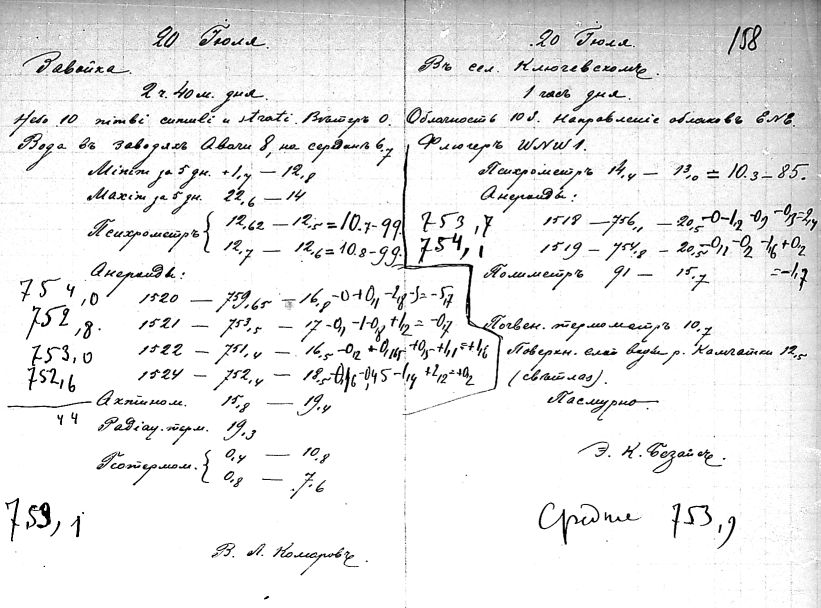 20 Iюля.
Завойка.
2 ч. 40 м. дня.
Небо 10 nimbi cumuli и strati. Вѣтеръ 0.
Вода въ заводяхъ Авачи 8, на серединѣ 6,7
Minim за 5 дн. +1,4 — 12,8
Maxim за 5 дн. 22,6 — 14
Психрометръ { 12,62 — 12,5 = 10.7 - 99.
12,7 — 12,6 = 10.8 - 99.
Анероиды:
754,0 1520 — 759,65 — 16,8 -0 +0,1 -2,8 -3 = -5,7
752,8. 1521 — 753,5 — 17 -0,1 -1 -0,8 +1,2 = -0,7
753,0 1522 — 751,4 — 16,5 -0,2 +0,165 +0,5 +1,1 = +1,6
752,6 1524 — 752,4 — 18,5 -0,16 -0,45 -1,14 +2,12 = +0,2
44
Актином. 15,8 — 19,4
Радiац. терм. 19,3
Геотермом. { 0,4 — 10,8
0,8 — 7,6
753,1
В. Л. Комаровъ.
158
20 Iюля.
Въ сел. Ключевскомъ.
1 часъ дня.
Облачность 10 S. Направленiе облаковъ ENE.
Флюгеръ WNW 1.
Психрометръ 14,4 — 13,0 = 10.3 — 85.
Анероиды:
753,7 1518 — 756,1 — 20,5 -0 -1,2 -0,9 -0,3 = 2,4
754,1 1519 — 754,8 — 20,5 -0,1 -0,2 -1,6 +0,2
= -1,7
Полиметръ 91 — 15,7
Почвен. термометръ 10,7
Поверхн. слой воды р. Камчатки 12,5
(свѣтлая).
Пасмурно.
Э. К. Безайсъ.
Средние 753,9